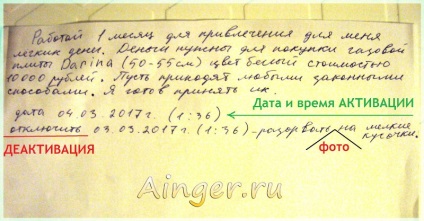 Работай 1 месяц для привлечения для меня
легких денег. Деньги нужны для покупки газовой
плиты Darina (50-55см) цвет белый стоимостью
10000 рублей. Пусть приходят любыми законными
способами. Я готов принять их.
Дата и время АКТИВАЦИИ
дата 04.03.2017г. (1:36)
отключить 03.03.2017г. (1:36) - разорвать на мелкие
кусочки.
ДЕАКТИВАЦИЯ
фото
Ainger.ru